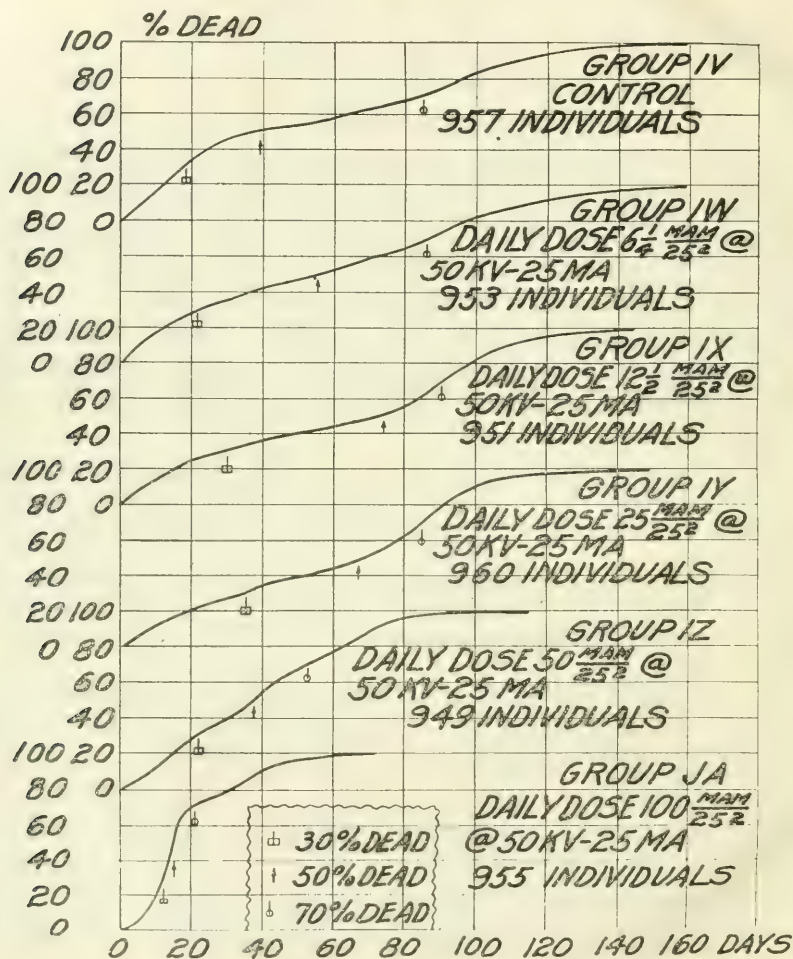 % DEAD
100
80
60
40
100 20
80 0
60
40
20 100
0 80
60
40
100 20
80 0
60
40
20 100
0 80
60
40
100 20
80 0
60
40
20
0
0 20 40 60 80 100 120 140 160 DAYS
GROUP IV
CONTROL
957 INDIVIDUALS
GROUP IW
DAILY DOSE 6 1/4 MAM/25² @
50 KV-25 MA
953 INDIVIDUALS
GROUP IX
DAILY DOSE 12 1/2 MAM/25² @
50 KV-25 MA
951 INDIVIDUALS
GROUP IY
DAILY DOSE 25 MAM/25² @
50 KV-25 MA
960 INDIVIDUALS
GROUP IZ
DAILY DOSE 50 MAM/25² @
50 KV-25 MA
949 INDIVIDUALS
GROUP JA
DAILY DOSE 100 MAM/25²
@ 50 KV-25 MA
955 INDIVIDUALS
30% DEAD
50% DEAD
70% DEAD